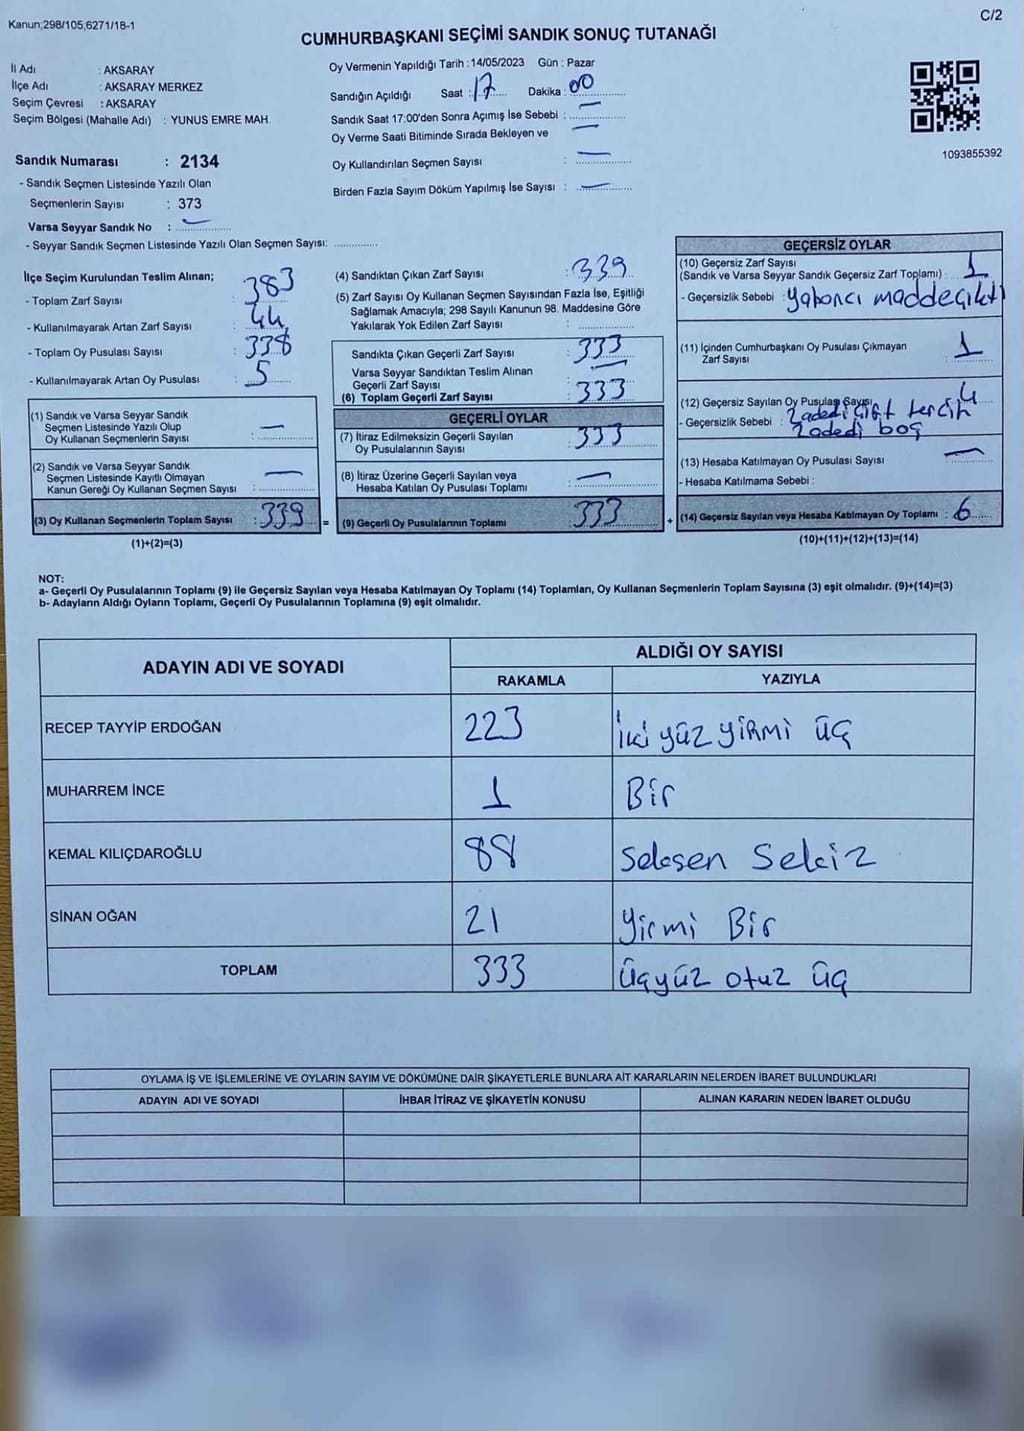 Kanun;298/105,6271/18-1
C/2
CUMHURBAŞKANI SEÇİMİ SANDIK SONUÇ TUTANAĞI
İl Adı : AKSARAY
İlçe Adı : AKSARAY MERKEZ
Seçim Çevresi : AKSARAY
Seçim Bölgesi (Mahalle Adı) : YUNUS EMRE MAH.
Sandık Numarası : 2134
- Sandık Seçmen Listesinde Yazılı Olan
Seçmenlerin Sayısı : 373
Varsa Seyyar Sandık No : —
- Seyyar Sandık Seçmen Listesinde Yazılı Olan Seçmen Sayısı:
Oy Vermenin Yapıldığı Tarih :14/05/2023 Gün : Pazar
Sandığın Açıldığı Saat : 17 Dakika : 00
Sandık Saat 17:00'den Sonra Açımış İse Sebebi : —
Oy Verme Saati Bitiminde Sırada Bekleyen ve —
Oy Kullandırılan Seçmen Sayısı : —
Birden Fazla Sayım Döküm Yapılmış İse Sayısı : —
1093855392
İlçe Seçim Kurulundan Teslim Alınan;
- Toplam Zarf Sayısı : 383
- Kullanılmayarak Artan Zarf Sayısı : 44
- Toplam Oy Pusulası Sayısı : 338
- Kullanılmayarak Artan Oy Pusulası : 5
(1) Sandık ve Varsa Seyyar Sandık
Seçmen Listesinde Yazılı Olup
Oy Kullanan Seçmenlerin Sayısı : —
(2) Sandık ve Varsa Seyyar Sandık
Seçmen Listesinde Kayıtlı Olmayan
Kanun Gereği Oy Kullanan Seçmen Sayısı : —
(3) Oy Kullanan Seçmenlerin Toplam Sayısı : 339 =
(1)+(2)=(3)
(4) Sandıktan Çıkan Zarf Sayısı : 339
(5) Zarf Sayısı Oy Kullanan Seçmen Sayısından Fazla İse, Eşitliği
Sağlamak Amacıyla; 298 Sayılı Kanunun 98. Maddesine Göre
Yakılarak Yok Edilen Zarf Sayısı :
Sandıkta Çıkan Geçerli Zarf Sayısı : 333
Varsa Seyyar Sandıktan Teslim Alınan
Geçerli Zarf Sayısı : —
(6) Toplam Geçerli Zarf Sayısı : 333
GEÇERLİ OYLAR
(7) İtiraz Edilmeksizin Geçerli Sayılan
Oy Pusulalarının Sayısı : 333
(8) İtiraz Üzerine Geçerli Sayılan veya
Hesaba Katılan Oy Pusulası Toplamı : —
(9) Geçerli Oy Pusulalarının Toplamı : 333 +
GEÇERSİZ OYLAR
(10) Geçersiz Zarf Sayısı
(Sandık ve Varsa Seyyar Sandık Geçersiz Zarf Toplamı) : 1
- Geçersizlik Sebebi : Yabancı madde çıktı
(11) İçinden Cumhurbaşkanı Oy Pusulası Çıkmayan
Zarf Sayısı : 1
(12) Geçersiz Sayılan Oy Pusulası Sayısı : 4
- Geçersizlik Sebebi : 2 adedi çift tercih
2 adedi boş
(13) Hesaba Katılmayan Oy Pusulası Sayısı : —
- Hesaba Katılmama Sebebi :
(14) Geçersiz Sayılan veya Hesaba Katılmayan Oy Toplamı : 6
(10)+(11)+(12)+(13)=(14)
NOT:
a- Geçerli Oy Pusulalarının Toplamı (9) ile Geçersiz Sayılan veya Hesaba Katılmayan Oy Toplamı (14) Toplamları, Oy Kullanan Seçmenlerin Toplam Sayısına (3) eşit olmalıdır. (9)+(14)=(3)
b- Adayların Aldığı Oyların Toplamı, Geçerli Oy Pusulalarının Toplamına (9) eşit olmalıdır.
ADAYIN ADI VE SOYADI ALDIĞI OY SAYISI
RAKAMLA YAZIYLA
RECEP TAYYİP ERDOĞAN 223 İki yüz yirmi üç
MUHARREM İNCE 1 Bir
KEMAL KILIÇDAROĞLU 88 Seksen Sekiz
SİNAN OĞAN 21 Yirmi Bir
TOPLAM 333 Üçyüz otuz üç
OYLAMA İŞ VE İŞLEMLERİNE VE OYLARIN SAYIM VE DÖKÜMÜNE DAİR ŞİKAYETLERLE BUNLARA AİT KARARLARIN NELERDEN İBARET BULUNDUKLARI
ADAYIN ADI VE SOYADI İHBAR İTİRAZ VE ŞİKAYETİN KONUSU ALINAN KARARIN NEDEN İBARET OLDUĞU